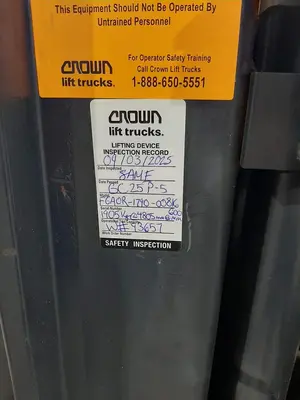 This Equipment Should Not Be Operated By
Untrained Personnel
CROWN
lift trucks.
For Operator Safety Training
Call Crown Lift Trucks
1-888-650-5551
CROWN
lift trucks.
LIFTING DEVICE
INSPECTION RECORD
09/03/2025
Date Inspected
SAME
GC25P-5
Model
Serial Number
W# 93657
Work Order Number
SAFETY INSPECTION